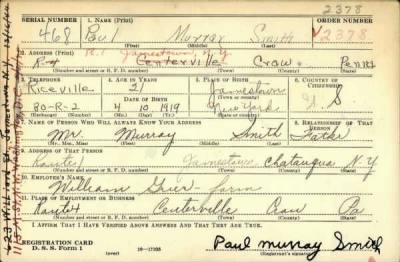 2378
SERIAL NUMBER 1. NAME (Print) ORDER NUMBER
468 Paul Murray Smith V2378
(First) (Middle) (Last)
R.1 Jamestown, N.Y.
2. ADDRESS (Print)
R-4 Centerville Craw. Penna
(Number and street or R. F. D. number) (Town) (County) (State)
3. TELEPHONE 4. AGE IN YEARS 5. PLACE OF BIRTH 6. COUNTRY OF CITIZENSHIP
Riceville 21 Jamestown
(Exchange) DATE OF BIRTH (Town or county)
80-R-2 4 10 1919 New York U.S
(Number) (Mo.) (Day) (Yr.) (State or country)
7. NAME OF PERSON WHO WILL ALWAYS KNOW YOUR ADDRESS 8. RELATIONSHIP OF THAT PERSON
Mr. Murray Smith Father
(Mr., Mrs., Miss) (First) (Middle) (Last)
9. ADDRESS OF THAT PERSON
Route 1 Jamestown Chatauqua N.Y
(Number and street or R. F. D. number) (Town) (County) (State)
10. EMPLOYER'S NAME
William farm
11. PLACE OF EMPLOYMENT OR BUSINESS
Route 4 Centerville Craw Pa
(Number and street or R. F. D. number) (Town) (County) (State)
I AFFIRM THAT I HAVE VERIFIED ABOVE ANSWERS AND THAT THEY ARE TRUE.
REGISTRATION CARD
D. S. S. Form 1 (over) 16-17105
Paul Murray Smith
(Registrant's signature)